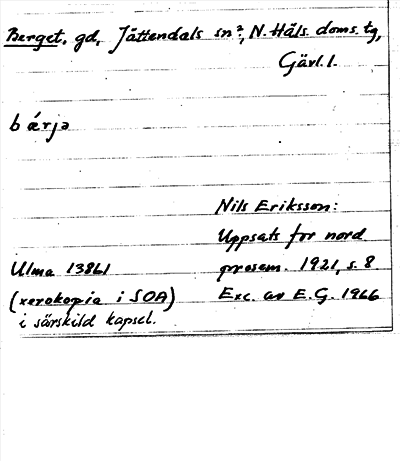 Berget. gd, Jättendals sn?, N. Häls. doms. tg,
Gävl. l.
bǽrjə
Nils Eriksson:
Uppsats för nord
prosem. 1921, s. 8
Exc. av E. G. 1966
Ulma 13861
(xerokopia i SOA)
i särskild kapsel.